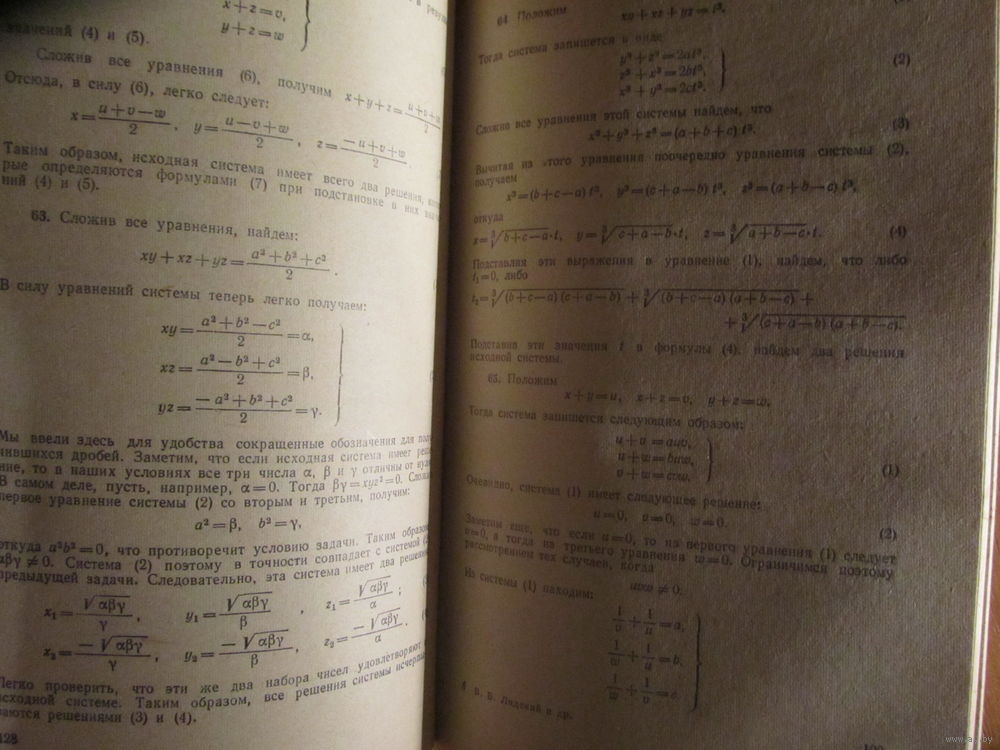 x + z = v,
y + z = w
значений (4) и (5).
Сложив все уравнения (6), получим x + y + z = (u + v + w)/2
Отсюда, в силу (6), легко следует:
x = (u + v − w)/2, y = (u − v + w)/2, z = (−u + v + w)/2.
Таким образом, исходная система имеет всего два решения,
рые определяются формулами (7) при подстановке в них
ний (4) и (5).
63. Сложив все уравнения, найдем:
xy + xz + yz = (a² + b² + c²)/2.
В силу уравнений системы теперь легко получаем:
xy = (a² + b² − c²)/2 = α,
xz = (a² − b² + c²)/2 = β,
yz = (−a² + b² + c²)/2 = γ.
Мы ввели здесь для удобства сокращенные обозначения для
чившихся дробей. Заметим, что если исходная система имеет
ние, то в наших условиях все три числа α, β и γ отличны от
В самом деле, пусть, например, α = 0. Тогда βγ = xyz² = 0.
первое уравнение системы (2) со вторым и третьим, получим:
a² = β, b² = γ,
откуда a²b² = 0, что противоречит условию задачи. Таким
αβγ ≠ 0. Система (2) поэтому в точности совпадает с системой
предыдущей задачи. Следовательно, эта система имеет два
x₁ = √αβγ/γ, y₁ = √αβγ/β, z₁ = √αβγ/α;
x₂ = −√αβγ/γ, y₂ = −√αβγ/β, z₂ = −√αβγ/α.
Легко проверить, что эти же два набора чисел удовлетворяют
исходной системе. Таким образом, все решения системы
ваются решениями (3) и (4).
128
64 Положим
xy + xz + yz = t³.
Тогда система запишется в виде
y³ + z³ = 2at³,
z³ + x³ = 2bt³,
x³ + y³ = 2ct³.
(2)
Сложив все уравнения этой системы найдем, что
x³ + y³ + z³ = (a + b + c) t³.
(3)
Вычитая из этого уравнения поочередно уравнения системы (2),
получаем
x³ = (b + c − a) t³, y³ = (c + a − b) t³, z³ = (a + b − c) t³,
откуда
x = ∛(b + c − a)·t, y = ∛(c + a − b)·t, z = ∛(a + b − c)·t.
(4)
Подставляя эти выражения в уравнение (1), найдем, что либо
t₁ = 0, либо
t₂ = ∛((b + c − a) (c + a − b)) + ∛((b + c − a) (a + b − c)) +
+ ∛((c + a − b) (a + b − c)).
Подставив эти значения t в формулы (4), найдем два решения
исходной системы.
65. Положим
x + y = u, x + z = v, y + z = w,
Тогда система запишется следующим образом:
u + v = auv,
u + w = buw,
v + w = cvw.
(1)
Очевидно, система (1) имеет следующее решение:
u = 0, v = 0, w = 0.
(2)
Заметим еще, что если u = 0, то из первого уравнения (1) следует
v = 0, а тогда из третьего уравнения w = 0. Ограничимся поэтому
рассмотрением тех случаев, когда
uvw ≠ 0.
Из системы (1) находим:
1/v + 1/u = a,
1/w + 1/u = b,
1/w + 1/v = c
В. Б. Лидский и др.